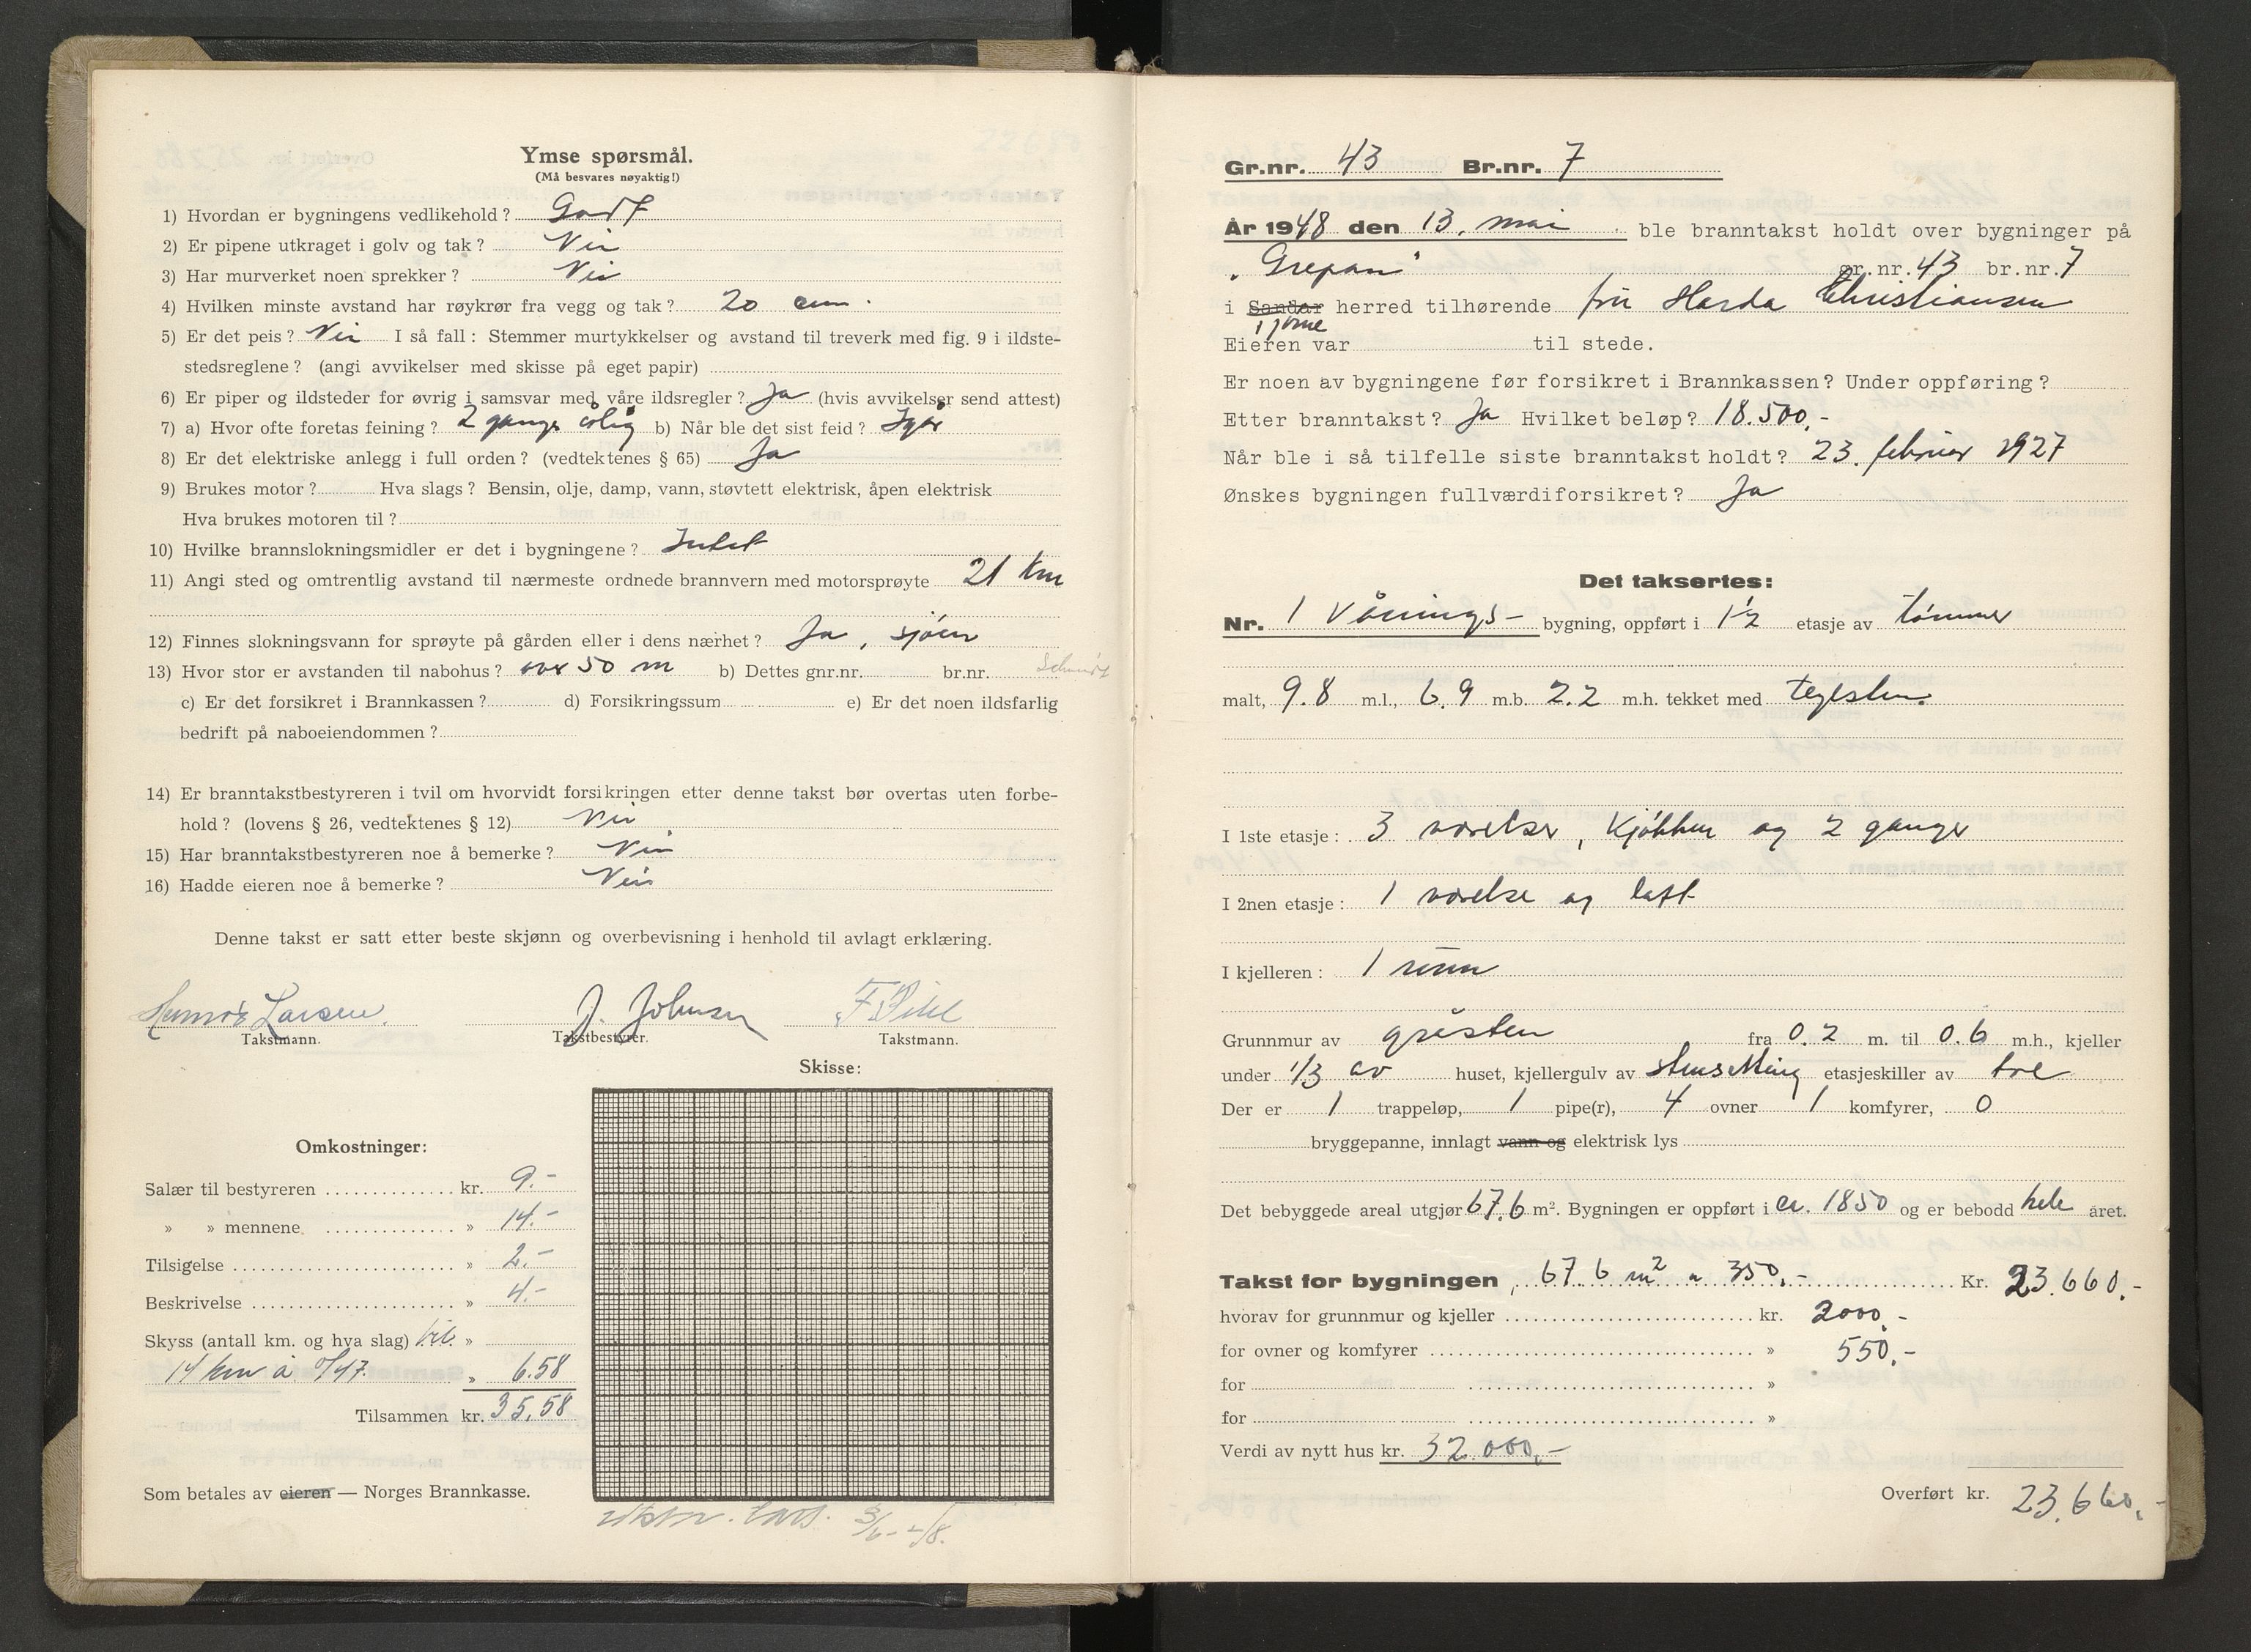 Ymse spørsmål.
(Må besvares nøyaktig!)
1) Hvordan er bygningens vedlikehold? Godt
2) Er pipene utkraget i golv og tak? Nei
3) Har murverket noen sprekker? Nei
4) Hvilken minste avstand har røykrør fra vegg og tak? 20 cm.
5) Er det peis? Nei I så fall: Stemmer murtykkelser og avstand til treverk med fig. 9 i ildste-
stedsreglene? (angi avvikelser med skisse på eget papir)
6) Er piper og ildsteder for øvrig i samsvar med våre ildsregler? Ja (hvis avvikelser send attest)
7) a) Hvor ofte foretas feining? 2 ganger årlig b) Når ble det sist feid? Igår
8) Er det elektriske anlegg i full orden? (vedtektenes § 65) Ja
9) Brukes motor? Hva slags? Bensin, olje, damp, vann, støvtett elektrisk, åpen elektrisk
Hva brukes motoren til?
10) Hvilke brannslokningsmidler er det i bygningene? Intet
11) Angi sted og omtrentlig avstand til nærmeste ordnede brannvern med motorsprøyte 21 km
12) Finnes slokningsvann for sprøyte på gården eller i dens nærhet? Ja, sjøen
13) Hvor stor er avstanden til nabohus? over 50 m b) Dettes gnr.nr. br.nr.
c) Er det forsikret i Brannkassen? d) Forsikringssum e) Er det noen ildsfarlig
bedrift på naboeiendommen?
14) Er branntakstbestyreren i tvil om hvorvidt forsikringen etter denne takst bør overtas uten forbe-
hold? (lovens § 26, vedtektenes § 12) Nei
15) Har branntakstbestyreren noe å bemerke? Nei
16) Hadde eieren noe å bemerke? Nei
Denne takst er satt etter beste skjønn og overbevisning i henhold til avlagt erklæring.
Larsen. J. Johnsen
Takstmann. Takstbestyrer. Takstmann.
Skisse:
Omkostninger:
Salær til bestyreren kr. 9.-
» » mennene » 14.-
Tilsigelse » 2.-
Beskrivelse » 4.-
Skyss (antall km. og hva slag) bil. »
14 km à 0/47 » 6.58
Tilsammen kr. 35.58
Som betales av eieren — Norges Brannkasse.
3/6-48.
Gr.nr. 43 Br.nr. 7
År 1948 den 13. mai ble branntakst holdt over bygninger på
"Grepan" gr.nr. 43 br.nr. 7
i Sandar herred tilhørende fru Harda Christiansen
Tjøme
Eieren var til stede.
Er noen av bygningene før forsikret i Brannkassen? Under oppføring?
Etter branntakst? Ja Hvilket beløp? 18.500,-
Når ble i så tilfelle siste branntakst holdt? 23. februar 1927
Ønskes bygningen fullværdiforsikret? Ja
Det taksertes:
Nr. 1 Vånings- bygning, oppført i 1½ etasje av tømmer
malt, 9.8 m.l., 6.9 m.b. 2.2 m.h. tekket med teglsten.
I 1ste etasje: 3 værelser, kjøkken og 2 ganger
I 2nen etasje: 1 værelse og loft
I kjelleren: 1 rum
Grunnmur av gråsten fra 0.2 m. til 0.6 m.h., kjeller
under 1/3 av huset, kjellergulv av stensetting etasjeskiller av tre
Der er 1 trappeløp, 1 pipe(r), 4 ovner 1 komfyrer, 0
bryggepanne, innlagt vann og elektrisk lys
Det bebyggede areal utgjør 67.6 m². Bygningen er oppført i ca. 1850 og er bebodd hele året.
Takst for bygningen, 67.6 m² a 350,- Kr. 23.660.-
hvorav for grunnmur og kjeller kr. 2000,-
for ovner og komfyrer » 550,-
for »
for »
Verdi av nytt hus kr. 32.000,-
Overført kr. 23.660,-